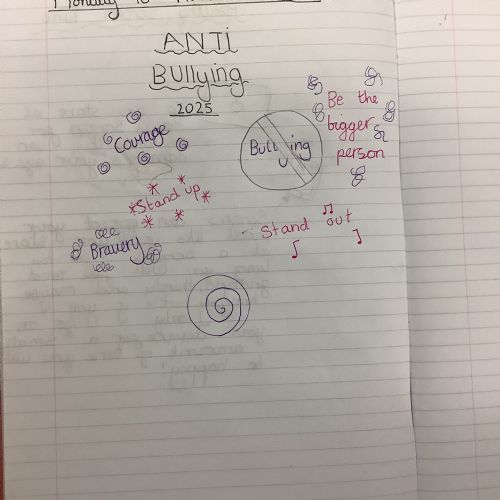 Monday 10
ANTi
BUllying
2025
Courage
Bullying
Be the
bigger
person
Stand up
Stand out
Bravery